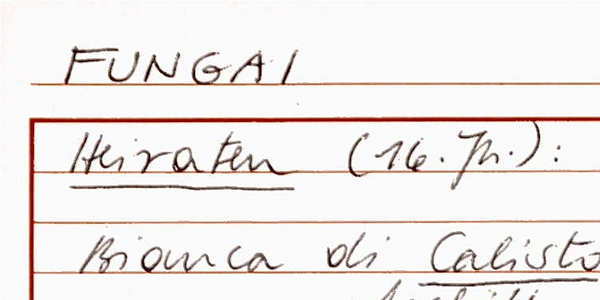 FUNGAI
Heiraten (16. Jh.):
Bianca di Calisto